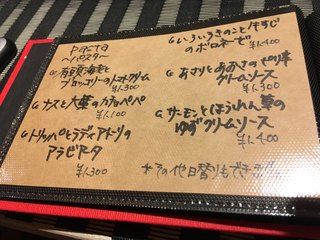 Pasta
〜パスタ〜
G 有頭海老と
ブロッコリーのトマトクリーム
¥1,300
G ナスと大葉のカチョペペ
¥1,100
G トリッパとラディアトーリの
アラビアータ
¥1,300
G いろいろきのこと牛すじ
のボロネーゼ
¥1,400
G あさりとあおさの
クリームソース
¥1,300
G サーモンとほうれん草の
ゆずクリームソース
¥1,400
※その他日替りもできます!!